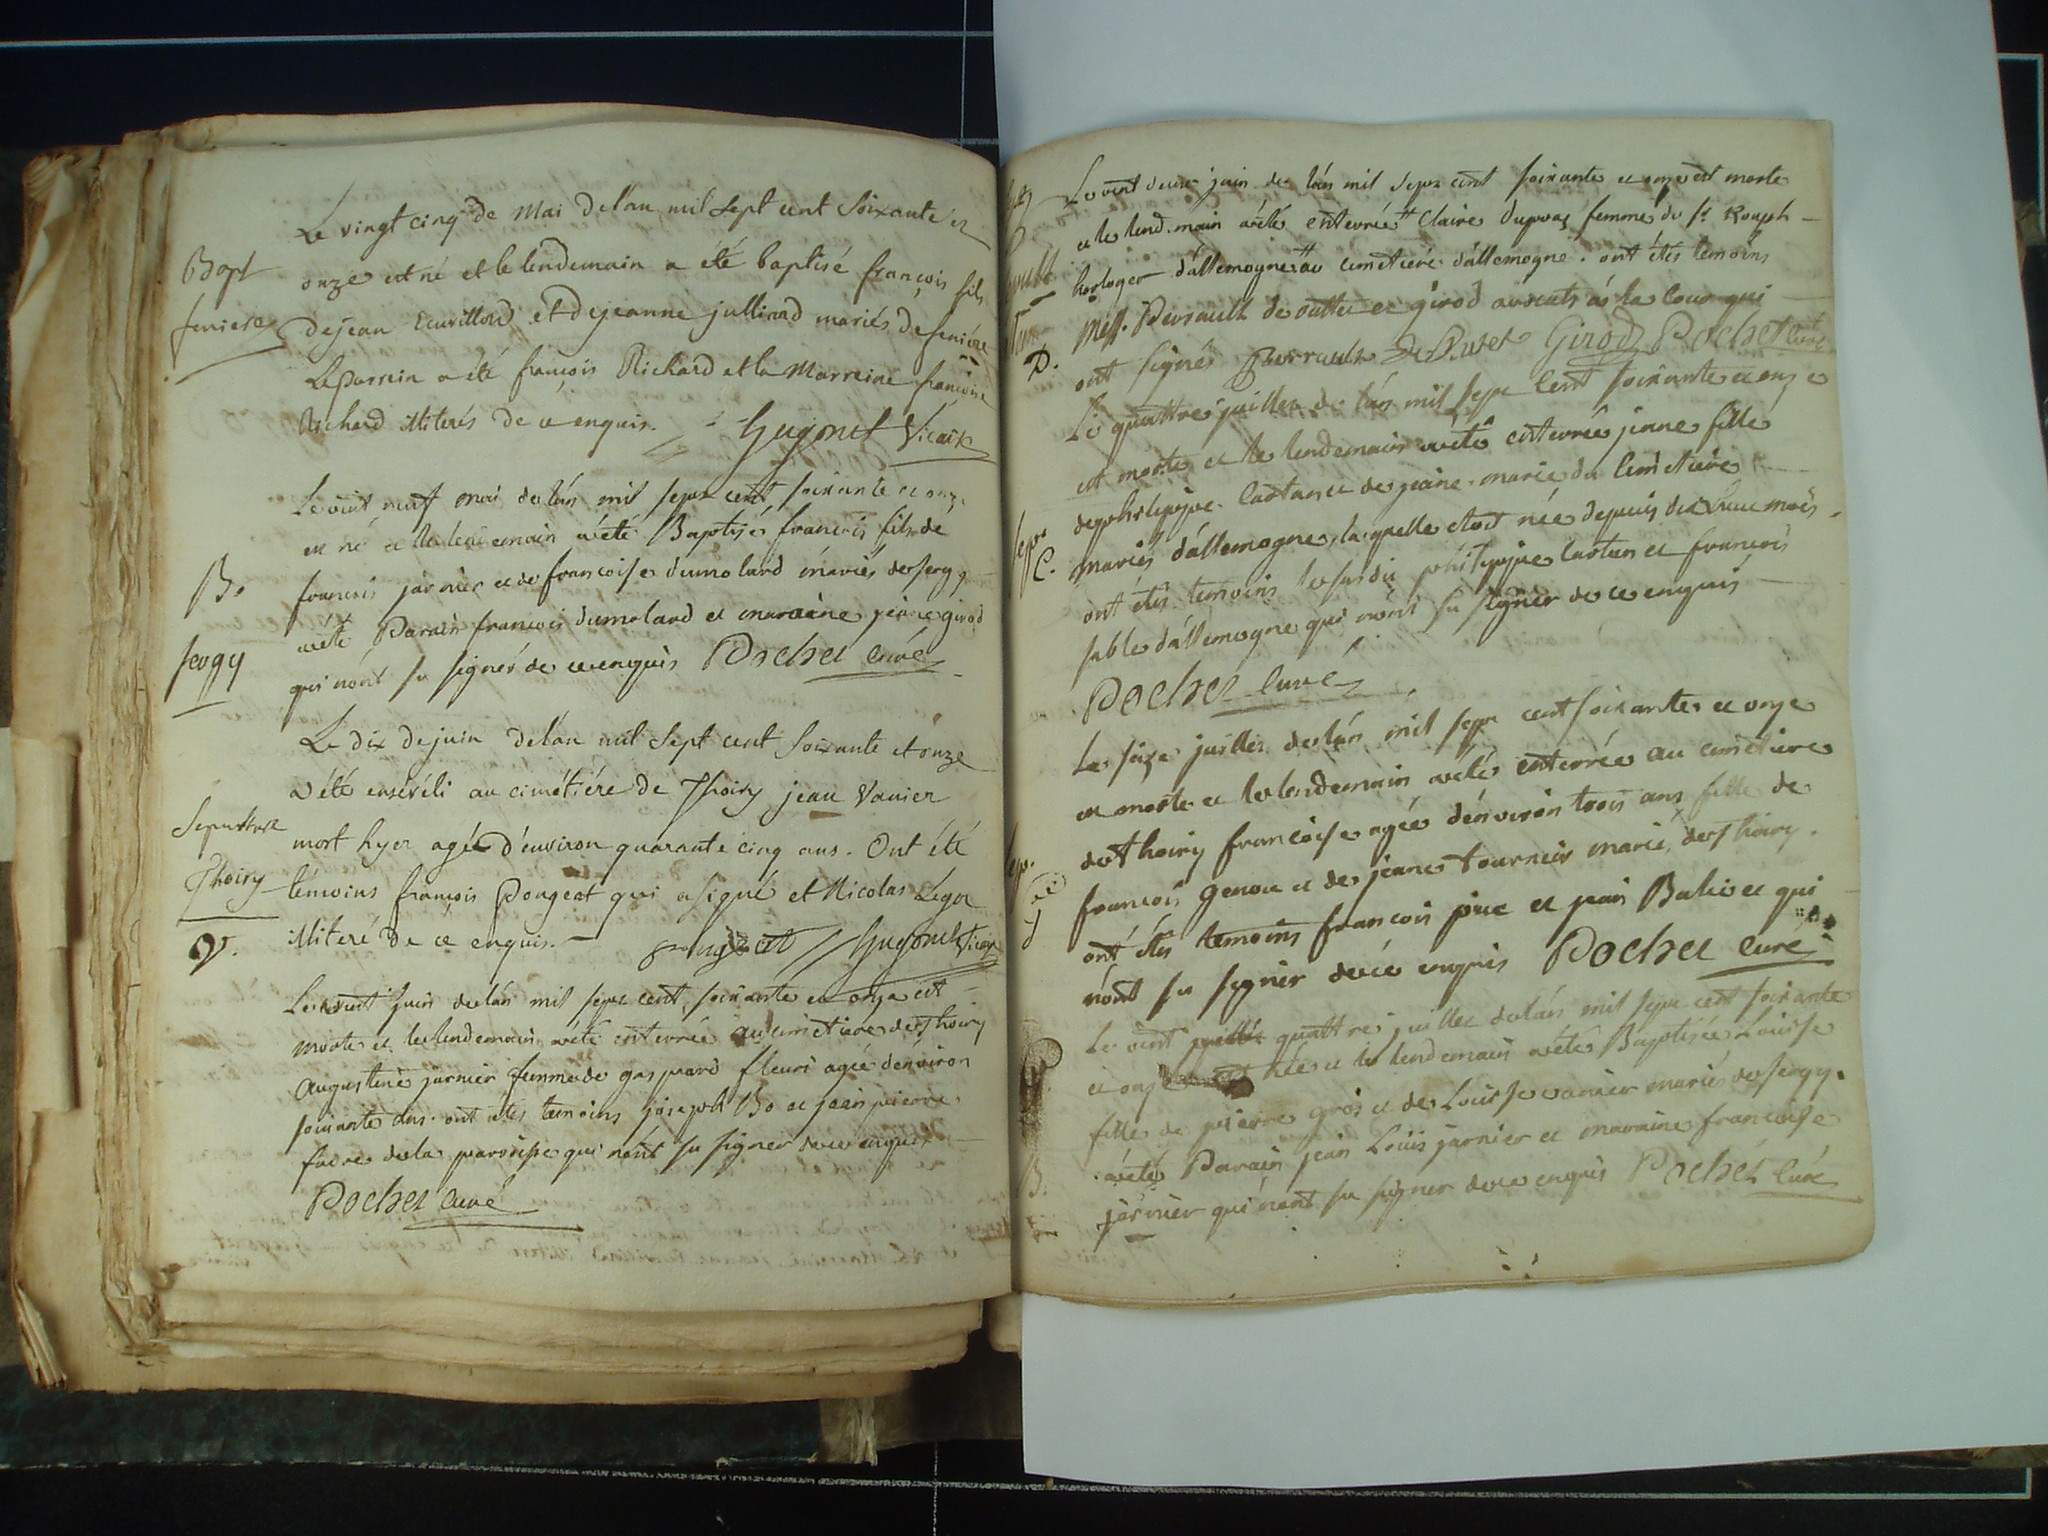 Le vingt cinq de Mai de l'an mil Sept cent Soixante et
Bapt
onze est né et le lendemain a été baptisé françois fils
feniere
de jean Ecuvillord et de jeanne jullirad mariés de feniére
Le Parrein a été françois Richard et la Marreine françoise
Richard illiterés de ce enquis. Hugonet Vicaire
Le vint neuf mai de lan mil sept cent soixante et onze
est né et le lendemain a été Baptisé francois fils de
B.
francois jarnier et de francoise dumolard mariés de sergy
a été Parain francois dumolard et maraine jeane girod
sergy
qui nont su signer de ce enquis Pochet curé
Le dix de juin de l'an mil Sept cent Soixante et onze
a été enseveli au cimétiére de Thoiry jean Vanier
Sepulture
mort hyer agé d'environ quarante cinq ans. Ont été
Thoiry
témoins françois Pougeat qui a signé et Nicolas Léger
V.
illiteré de ce enquis. Hugonet Vicaire
Le vint juin de lan mil sept cent soixante et onze est
morte et le lendemain a été enterrée au cimetiere de Thoiry
augustine jarnier femme de gaspard fleuri agée denviron
soixante ans. ont étés temoins joseph Bo et jean pierre
favre de la paroisse qui nont su signer de ce enquis
Pochet curé
Le vint deux juin de lan mil sept cent soixante et onze est morte
et le lendemain a été enterrée Claire femme du Sr.
horloger dallemogne au cimetiere dallemogne. ont étés temoins
Mess. Perrault de et girod avocats a la cour qui
D.
ont signés Perrault Girod Pochet curé
Le quattre juillet de lan mil sept cent soixante et onze
est morte et le lendemain a été enterrée jeane fille
de philippe Lartan et de jeane marie du Cimetiere
mariés dallemogne, laquelle etoit née depuis mois
sep.
C.
ont étés temoins le susdit philippe Lartan et francois
sable dallemogne qui nont su signer de ce enquis
Pochet curé
Le seize juillet de lan mil sept cent soixante et onze
est morte et le lendemain a été enterrée au cimetiere
de Thoiry francoise agée denviron trois ans fille de
francois Genou et de jeane tournier mariés de Thoiry.
ont étés temoins francois et jean et qui
nont su signer de ce enquis Pochet curé
Le vint quattre juillet de lan mil sept cent soixante
et onze est née et le lendemain a été Baptisée Louise
fille de pierre gros et de Louise vanier mariés de sergy.
a été Parain jean Louis jarnier et maraine francoise
B.
jarnier qui nont su signer de ce enquis Pochet curé